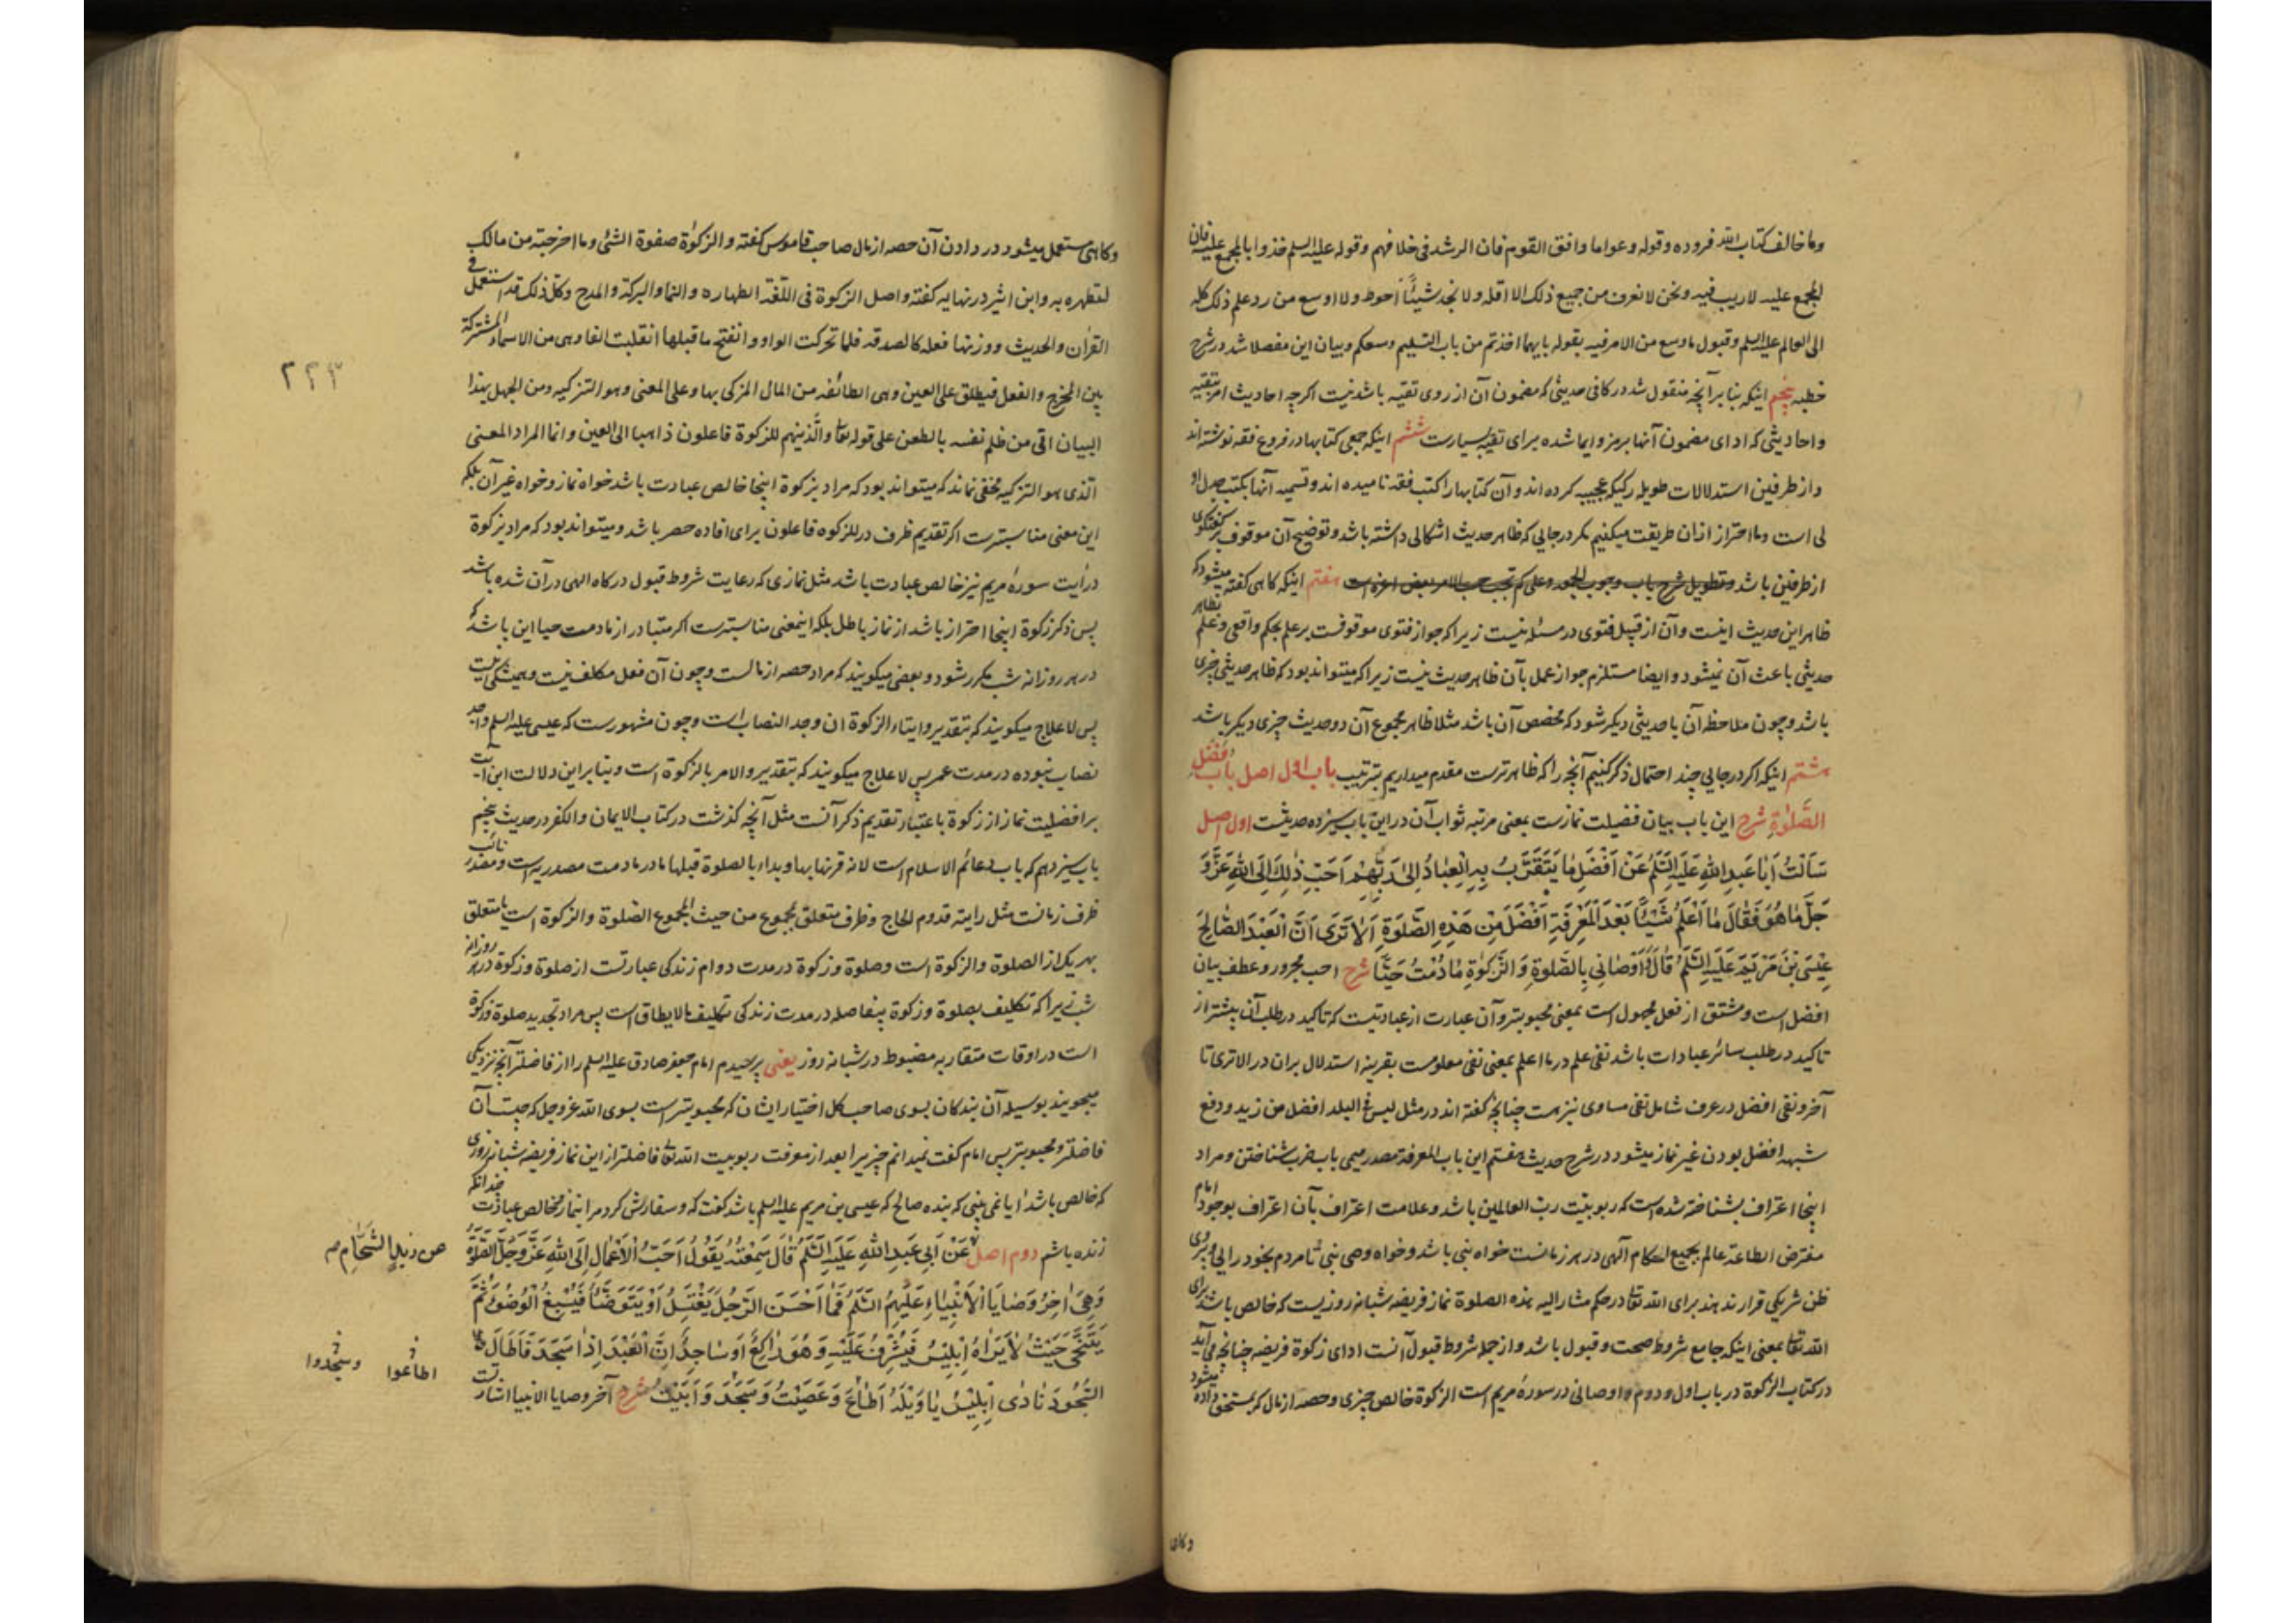 وما خالف کتاب الله فردوه وقوله دعوا ما وافق القوم فان الرشد فی خلافهم وقوله علیه السلم خذوا بالمجمع علیه فان
المجمع علیه لاریب فیه ونحن لا نعرف من جمیع ذلک الا اقله ولا نجد شیئًا احوط ولا اوسع من رد علم ذلک کله
الی العالم علیه السلم وقبول ما وسع من الامر فیه بقوله بایهما اخذتم من باب التسلیم وسعکم وبیان این مفصلا شد در شرح
خطبه پنجم اینکه بنا بر آنچه منقول شد در کافی حدیثی که مضمون آن از روی تقیه باشد نیست اکرچه احادیث امر بتقیه
واحادیثی که ادای مضمون آنها برمز وایما شده برای تقیه بسیارست ششم اینکه جمعی کتابها در فروع فقه نوشته اند
واز طرفین استدلالات طویله رکیکه عجیبه کرده اند وآن کتابها را کتب فقه نامیده اند وتسمیه آنها بکتب اصل او
لی است وما احتراز ازان طریقت میکنیم مکر در جایی که ظاهر حدیث اشکالی داشته باشد وتوضیح آن موقوف بر کفتکوی
از طرفین باشد هفتم اینکه کاهی کفته میشود که
ظاهر این حدیث اینست وآن از قبیل فتوی در مسئله نیست زیرا که جواز فتوی موقوفست بر علم بحکم واقعی وعلم بظاهر
حدیثی باعث آن نمیشود وایضا مستلزم جواز عمل بآن ظاهر حدیث نیست زیرا که میتواند بود که ظاهر حدیثی چیزی
باشد وچون ملاحظه آن با حدیثی دیکر شود که مخصص آن باشد مثلا ظاهر مجموع آن دو حدیث چیزی دیکر باشد
هشتم اینکه اکر در جایی چند احتمال ذکر کنیم آنچه را که ظاهرترست مقدم میداریم بترتیب باب اول اصل باب فَضْلِ
الصَّلٰوةِ شرح این باب بیان فضیلت نمازست بمعنی مرتبه ثواب آن در این باب سیزده حدیثست اول اصل
سَاَلْتُ اَبَا عَبْدِ اللّٰهِ عَلَیْهِ السَّلَمُ عَنْ اَفْضَلِ مٰا یَتَقَرَّبُ بِهِ الْعِبٰادُ اِلیٰ رَبِّهِمْ وَاَحَبِّ ذٰلِکَ اِلَی اللّٰهِ عَزَّ وَ
جَلَّ مٰا هُوَ فَقٰالَ مٰا اَعْلَمُ شَیْئًا بَعْدَ الْمَعْرِفَةِ اَفْضَلَ مِنْ هٰذِهِ الصَّلٰوةِ اَلٰا تَرَی اَنَّ الْعَبْدَ الصّٰالِحَ
عِیْسَی بْنَ مَرْیَمَ عَلَیْهِ السَّلَمُ قٰالَ وَاَوْصٰانِی بِالصَّلٰوةِ وَالزَّکٰوةِ مٰا دُمْتُ حَیًّا شرح احب مجرور وعطف بیان
افضل است ومشتق از فعل مجهول است بمعنی محبوبتر وآن عبارت از عبادتیست که تاکید در طلب آن بیشتر از
تاکید در طلب سائر عبادات باشد نفی علم در ما اعلم بمعنی نفی معلومست بقرینه استدلال بران در الا تری تا
آخر ونفی افضل در عرف شامل نفی مساوی نیز هست چنانچه کفته اند در مثل لیس فی البلد افضل من زید ودفع
شبهه افضل بودن غیر نماز میشود در شرح حدیث هفتم این باب المعرفة مصدر میمی باب ضرب شناختن ومراد
اینجا اعتراف بشناخته شده است که ربوبیت رب العالمین باشد وعلامت اعتراف بآن اعتراف بوجود امام
مفترض الطاعة عالم بجمیع احکام الهی در هر زمانست خواه نبی باشد وخواه وصی نبی تا مردم بخود رایی وپیروی
ظن شریکی قرار ندهند برای الله تعٰا در حکم مشار الیه هذه الصلوة نماز فریضه شبانه روزیست که خالص باشد برای
الله تعٰا بمعنی اینکه جامع شروط صحت وقبول باشد واز جمله شروط قبول آنست ادای زکوة فریضه چنانچه می آید
در کتاب الزکوة در باب اول ودوم واوصانی در سوره مریم است الزکوة خالص چیزی وحصه از مال که بمستحق داده میشود
وکاهی
وکاهی مستعمل میشود در دادن آن حصه از مال صاحب قاموس کفته والزکوٰة صفوة الشئ وما اخرجته من مالک
لتطهره به وابن اثیر در نهایه کفته واصل الزکوة فی اللغة الطهاره والنما والبرکة والمدح وکل ذلک قد استعمل فی
القرآن والحدیث ووزنها فعله کالصدقه فلما تحرکت الواو وانفتح ما قبلها انقلبت الفا وهی من الاسماء المشترکة
بین المخرج والفعل فیطلق علی العین وهی الطائفه من المال المزکی بها وعلی المعنی وهو التزکیه ومن الجهل بهذا
البیان اتی من ظلم نفسه بالطعن علی قوله تعٰا والّذینهم للزکوة فاعلون ذاهبا الی العین وانما المراد المعنی
الّذی هو التزکیه مخفی نماند که میتواند بود که مراد بزکوة اینجا خالص عبادت باشد خواه نماز وخواه غیر آن بلکه
این معنی مناسبترست اکر تقدیم ظرف در للزکوه فاعلون برای افاده حصر باشد ومیتواند بود که مراد بزکوة
در آیت سورهٔ مریم نیز خالص عبادت باشد مثل نمازی که رعایت شروط قبول درکاه الهی در آن شده باشد
پس ذکر زکوة اینجا احتراز باشد از نماز باطل بلکه اینمعنی مناسبترست اکر متبادر از ما دمت حیا این باشد که
در هر روز انه شب مکرر شود وبعضی میکویند که مراد حصه از مالست وچون آن فعل مکلف نیست وهمیشکی نیست
پس لا علاج میکویند که بتقدیر وایتاء الزکوة ان وجد النصاب است وچون مشهورست که عیسی علیه السلم واجد
نصاب نبوده در مدت عمر پس لا علاج میکویند که بتقدیر والامر بالزکوة است وبنا بر این دلالت این آیت
بر افضلیت نماز از زکوة باعتبار تقدیم ذکر آنست مثل آنچه کذشت در کتاب الایمان والکفر در حدیث پنجم
باب سیزدهم که باب دعائم الاسلام است لانه قرنها بها وبداء بالصلوة قبلها ما در ما دمت مصدریه است ومصدر نائب
ظرف زمانست مثل رایته قدوم الحاج وظرف متعلق بمجموع من حیث المجموع الصلوة والزکوة است یا متعلق
بهر یک از الصلوة والزکوة است وصلوة وزکوة در مدت دوام زندکی عبارتست از صلوة وزکوة در هر روز انه
شب زیرا که تکلیف بصلوة وزکوة بیفاصله در مدت زندکی تکلیف ما لا یطاق است پس مراد تجدید صلوة وزکوة
است در اوقات متقاربه مضبوط در شبانه روز یعنی پرسیدم امام جعفر صادق علیه السلم را از فاضلتر آنچه نزدیکی
میجویند بوسیله آن بندکان بسوی صاحب کل اختیار ایشان که محبوبتر است بسوی الله عز وجل که چیست آن
فاضلتر ومحبوبتر پس امام کفت نمیدانم چیزیرا بعد از معرفت ربوبیت الله تعٰا فاضلتر از این نماز فریضه شبانه روزی
که خالص باشد ایا نمی بینی که بنده صالح که عیسی بن مریم علیه السلم باشد کفت که وسفارش کرد مرا بنماز وخالص عبادت چندانکه
زنده باشم دوم اصل عَنْ اَبِی عَبْدِ اللّٰهِ عَلَیْهِ السَّلَمُ قٰالَ سَمِعْتُهُ یَقُولُ اَحَبُّ الْاَعْمٰالِ اِلَی اللّٰهِ عَزَّ وَجَلَّ الصَّلٰوةُ
وَهِیَ اٰخِرُ وَصٰایَا الْاَنْبِیٰاءِ عَلَیْهِمُ السَّلَمُ فَمٰا اَحْسَنَ الرَّجُلَ یَغْتَسِلُ اَوْ یَتَوَضَّأُ فَیُسْبِغُ الْوُضُوءَ ثُمَّ
یَتَنَحّیٰ حَیْثُ لٰا یَرٰاهُ اِبْلِیْسُ فَیُشْرِفُ عَلَیْهِ وَهُوَ رٰاکِعٌ اَوْ سٰاجِدٌ اِنَّ الْعَبْدَ اِذٰا سَجَدَ فَاَطٰالَ
السُّجُودَ نٰادیٰ اِبْلِیْسُ یٰا وَیْلَهُ اَطٰاعَ وَعَصَیْتُ وَسَجَدَ وَاَبَیْتُ شرح آخر وصایا الانبیا اشارتست
۲۲۳
عن زیدٍ الشَّحّٰامِ
اطاعوا وسجدوا